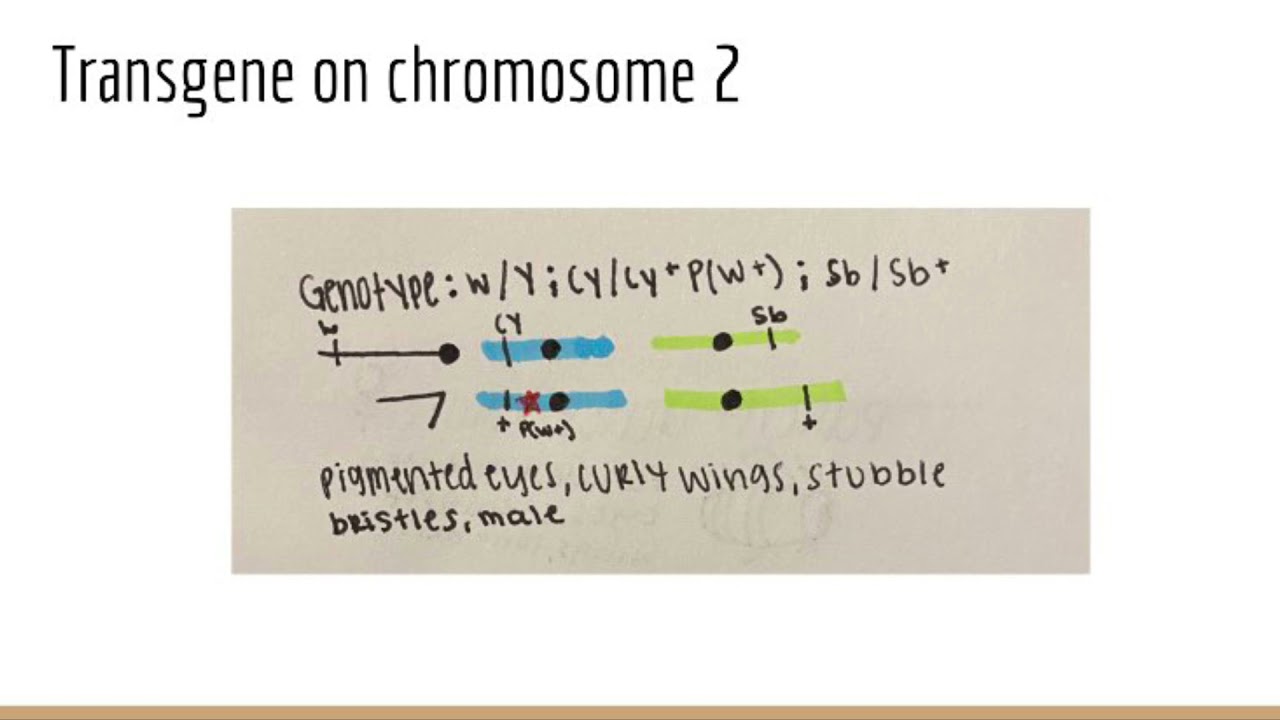 Transgene on chromosome 2
Genotype: w/Y; Cy/Cy+ P(w+); Sb/Sb+
w
Cy
Sb
+ P(w+)
+
pigmented eyes, curly wings, stubble
bristles, male